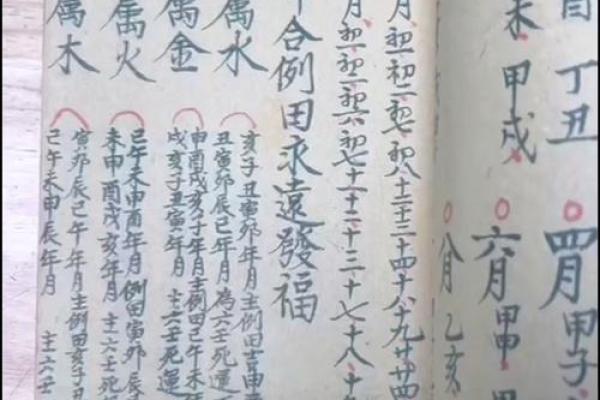 酉丁丑○四月甲子
未甲戌○六月甲申甲
○八月乙亥
月、初一初二初七初八十二十三十四十八十九廿廿四
月、初一、初二、初六、初七、十一、十二、十三、十七、十八、十
合例田永遠發福
属水○亥子丑寅卯年月主例田
丑寅卯辰巳年月為六壬死運
属金○申酉戌亥子年月主例田巳午未年
戌亥子丑寅年月主六壬死運
属火○巳午未申酉年月例田寅卯辰
未申酉戌亥年月主六壬死
属木○寅卯辰巳午年月主例田亥子丑
巳午未申辰年月主六壬